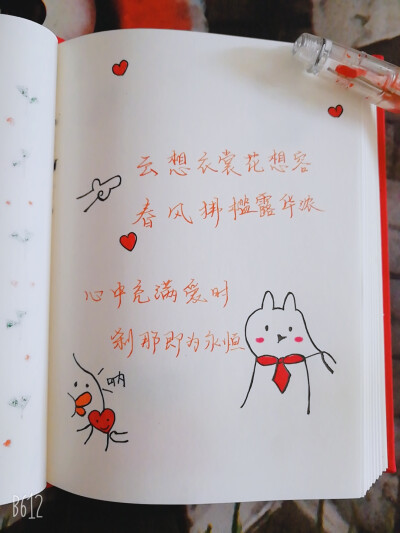 云想衣裳花想容
春风拂槛露华浓
心中充满爱时
刹那即为永恒
呐
B612